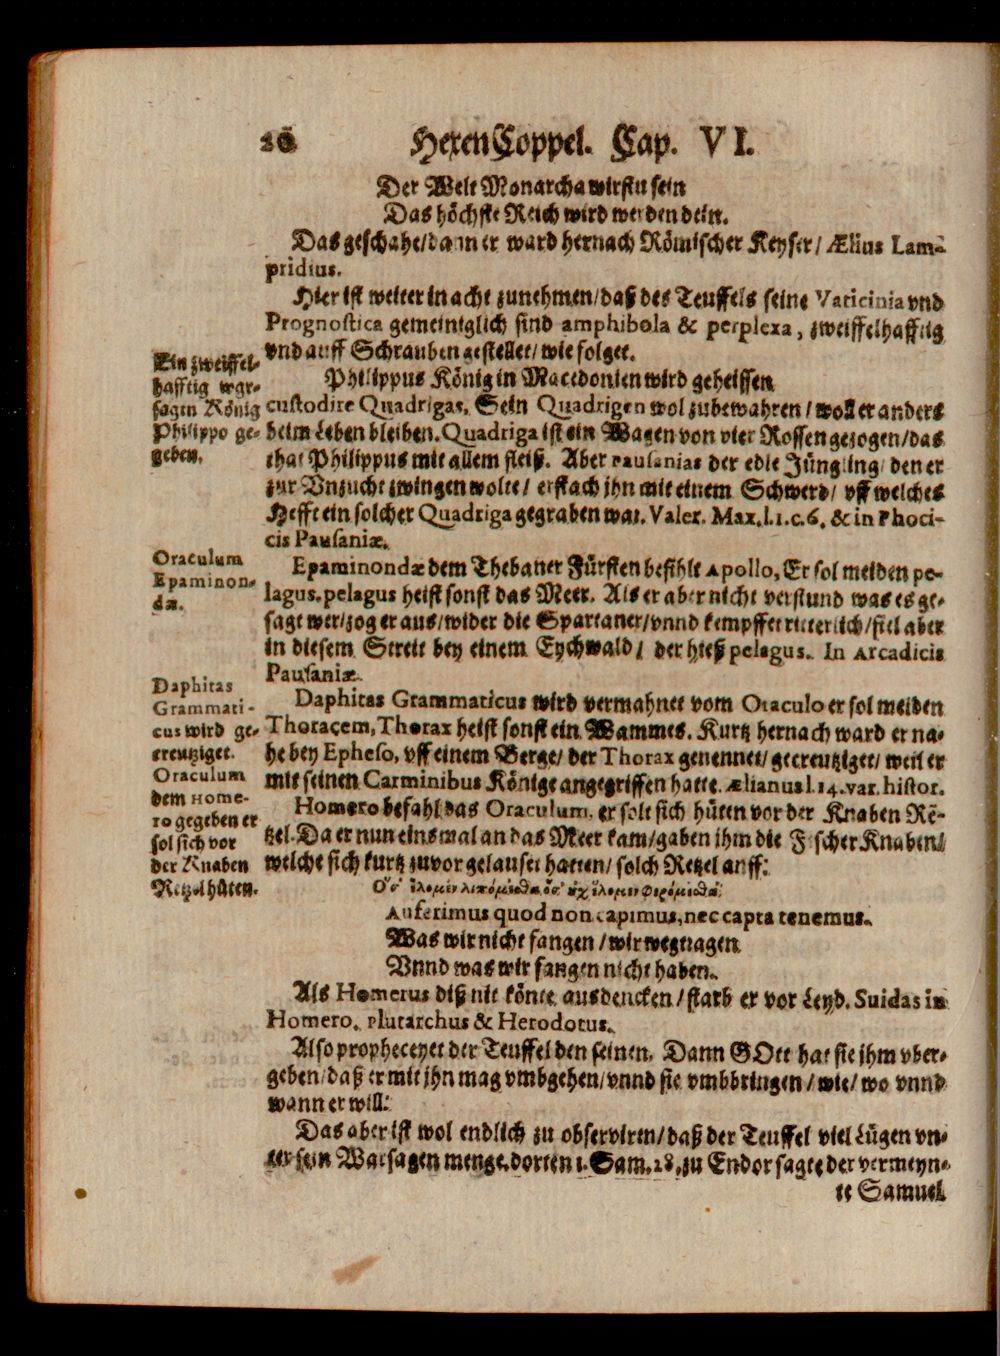 HexenCoppel. Cap. VI.
Der Welt Monarcha wirstu sein
Das höchste Reich wird werden dein.
Das geschahe/dann er ward hernach Römischer Keyser/ Ælius Lam-
pridius.
Hier ist weiter in acht zunehmen/daß des Teuffels seine Vaticinia vnd
Prognostica gemeiniglich sind amphibola & perplexa, zweiffelhafftig
vnd auff Schrauben gestellet/wie folget.
Ein zweiffel-
hafftig war-
sagen König
Philippo ge-
geben.
Philippus König in Macedonien wird geheissen
custodire Quadrigas, Sein Quadrigen wol zubewahren/woll er anders
beim Leben bleiben. Quadriga ist ein Wagen von vier Rossen gezogen/das
that Philippus mit allem fleiß. Aber Pausanias der edle Jüngling/den er
zur Vnzucht zwingen wolte/ erstach ihn mit einem Schwerd/ vff welches
Hefft ein solcher Quadriga gegraben war. Valer. Max. l.1.c.6. & in Phoci-
cis Pausaniæ.
Oraculum
Epaminon-
dæ.
Epaminondæ dem Thebaner Fürsten befihlt Apollo, Er sol meiden pe-
lagus. pelagus heist sonst das Meer. Als er aber nicht verstund was es ge-
sagt wer/zog er aus/wider die Spartaner/vnnd kempffet ritterlich/fiel aber
in diesem Streit bey einem Eychwald/ der hieß pelagus. In Arcadicis
Pausaniæ.
Daphitas
Grammati-
cus wird ge-
creutziget.
Daphitas Grammaticus wird vermahnet vom Oraculo er sol meiden
Thoracem, Thorax heist sonst ein Wammes. Kurtz hernach ward er na-
he bey Epheso, vff einem Berge/ der Thorax genennet/gecreutziget/ weil er
mit seinen Carminibus Könige angegriffen hatte. Ælianus l.14. var. histor.
Oraculum
dem Home-
ro gegeben er
sol sich vor
der Knaben
Retzel hüten.
Homero befahl das Oraculum, er solt sich hüten vor der Knaben Rē-
tzel. Da er nun einsmal an das Meer kam/gaben ihm die Fischer Knaben/
welche sich kurtz zuvor gelauset hatten/ solch Retzel auff:
Auferimus quod non capimus, nec capta tenemus.
Was wir nicht fangen/wir wegtragen
Vnnd was wir fangen nicht haben.
Als Homerus diß nit könte ausdencken/starb er vor Leyd. Suidas in
Homero. Plutarchus & Herodotus.
Also propheceyet der Teuffel den seinen. Dann GOtt hat sie ihm vber-
geben/daß er mit ihn mag vmbgehen/vnnd sie vmbbringen/wie/ wo vnnd
wann er will:
Das aber ist wol endlich zu observiren/daß der Teuffel viel Lügen vn-
ter sein Warsagen menge. dorten 1. Sam. 28. zu Endor sagte der vermeyn-
te Samuel